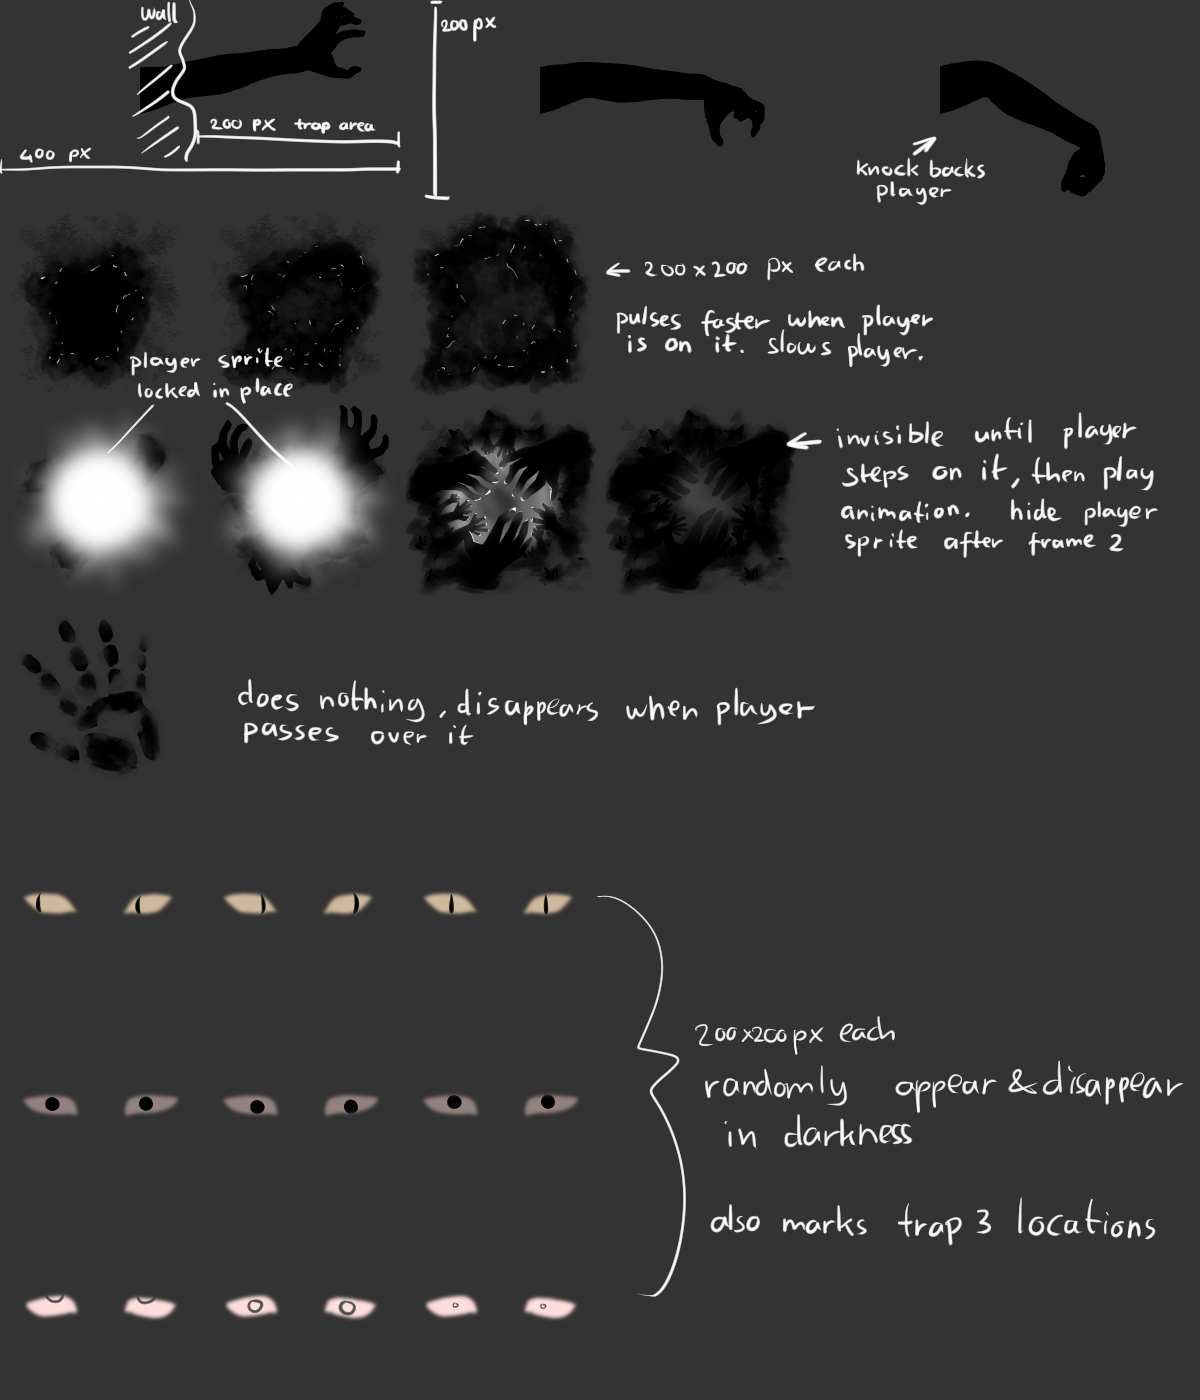 wall
200 px
200 PX trap area
400 PX
knock backs
player
← 200x200 px each
pulses faster when player
is on it. slows player.
player sprite
locked in place
invisible until player
steps on it, then play
animation. hide player
sprite after frame 2
does nothing, disappears when player
passes over it
200x200px each
randomly appear & disappear
in darkness
also marks trap 3 locations